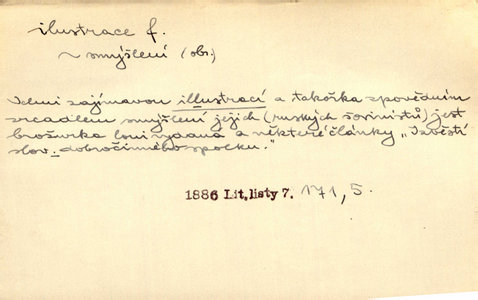 ilustrace f.
~ smýšlení (obr.)
Velmi zajímavou illustrací a takořka zpovědním
zrcadlem smýšlení jejich (ruských šovinistů) jest
brošurka loni vydaná a některé články „Izvěstí
slov. dobročinného spolku."
1886 Lit. listy 7. 171, 5.